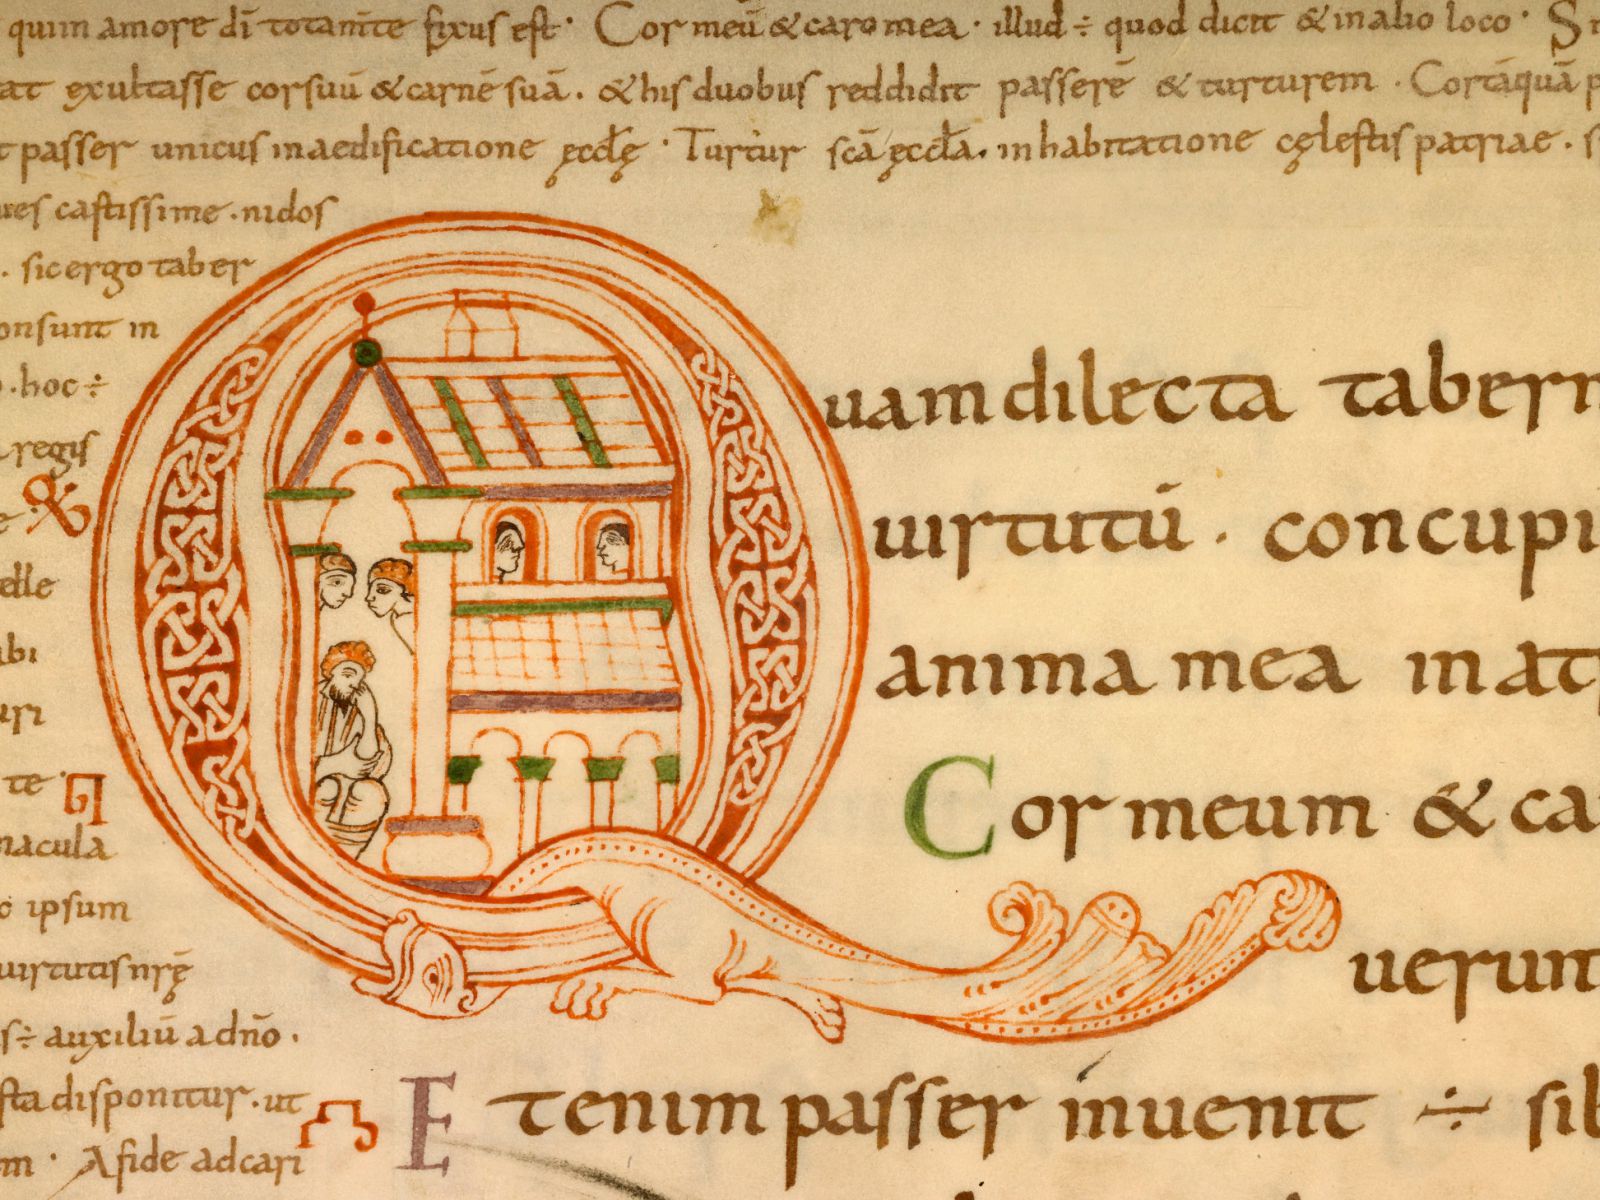 quim amore dī totam̄te fixus est· Cor meū & caro mea · illud ÷ quod dicit & in alio loco · S
at exultasse cor suū & carnē suā. & his duobus reddidit passerē & turturem · Cor tāquā p
t passer unicus in aedificatione ęccłę · Turtur scā ęccła. in habitatione cęlestis patriae · s
ues castissime · nidos
. sic ergo taber
onsunt in
. hoc ÷
regis
elle
ibi
uri
te ·
nacula
c ipsum
uirtutis nrę̄
s ÷ auxiliū a dn̄o ·
sta disponitur · ut
m · A fide ad cari
Quam dilecta tabern
uirtutū · concupi
anima mea in atr
Cor meum & ca
uerunt
Etenim passer inuenit ÷ sib